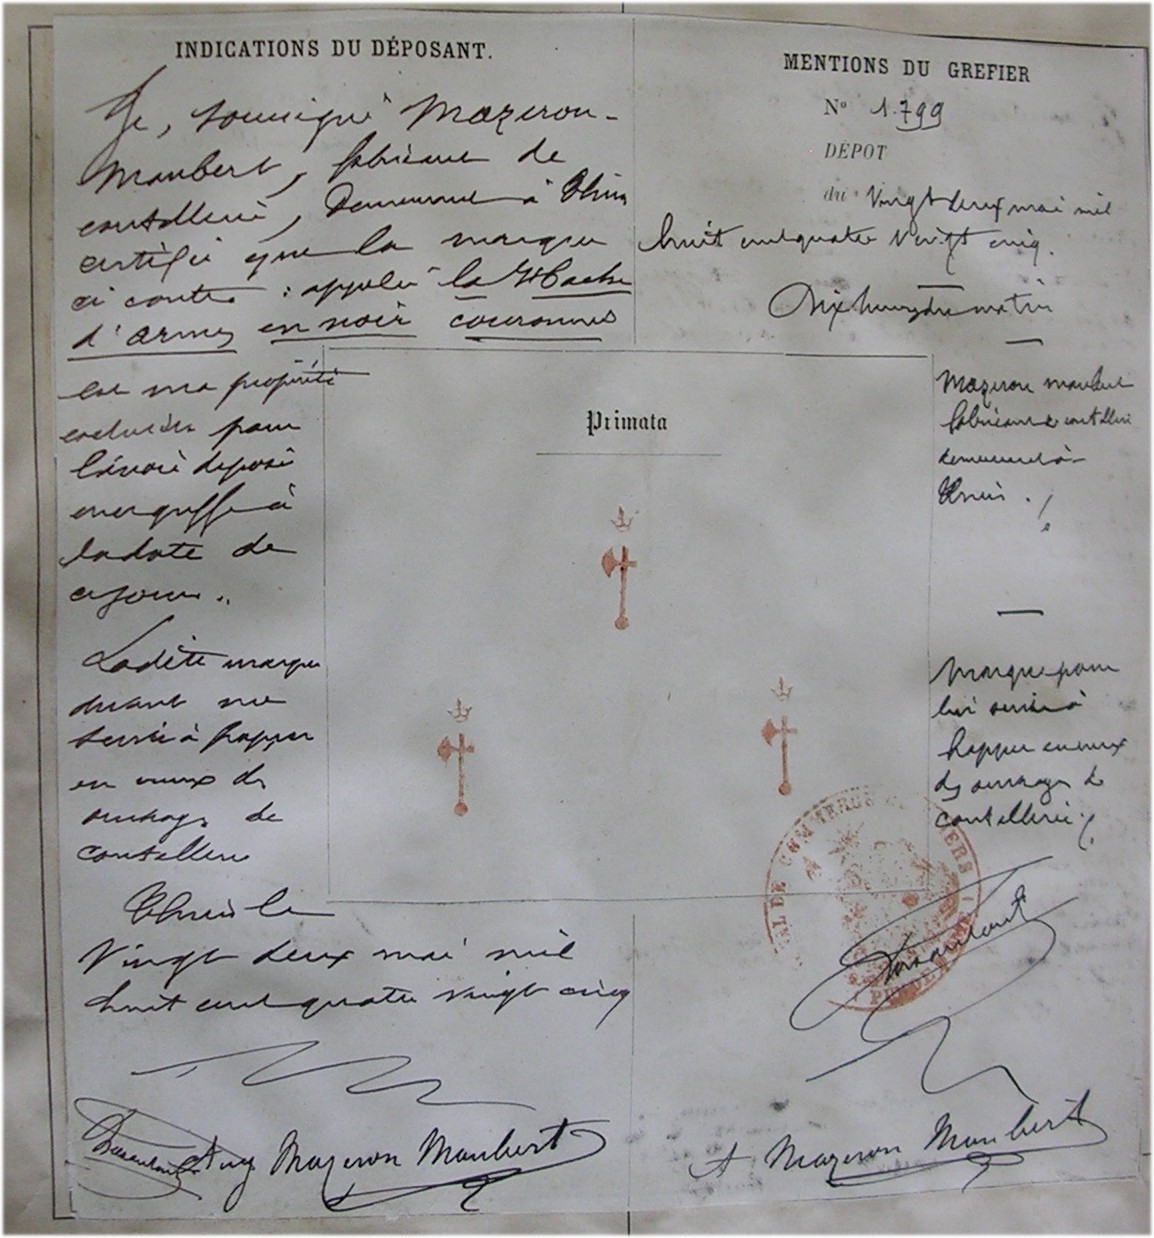 INDICATIONS DU DÉPOSANT.
Je, soussigné Mazeron-
Maubert, fabricant de
coutellerie, demeurant à Thiers
certifie que la marque
ci contre : appelée la Hache
d'armes en noir couronnée
est ma propriété
exclusive pour
l'avoir déposé
au greffe à
la date de
ce jour.
Ladite marque
devant me
servir à frapper
en creux des
ouvrages de
coutellerie
Thiers le
Vingt deux mai mil
huit cent quatre vingt cinq
Mazeron Maubert
MENTIONS DU GREFIER
N° 1.799
DÉPOT
du Vingt deux mai mil
huit cent quatre vingt cinq.
Dix heures du matin
Mazeron Maubert
fabricant de coutellerie
demeurant à
Thiers.
Marque pour
lui servir à
frapper en creux
des ouvrages de
coutellerie.
Primata
AL DE COMMERCE
PUY DE
A Mazeron Maubert